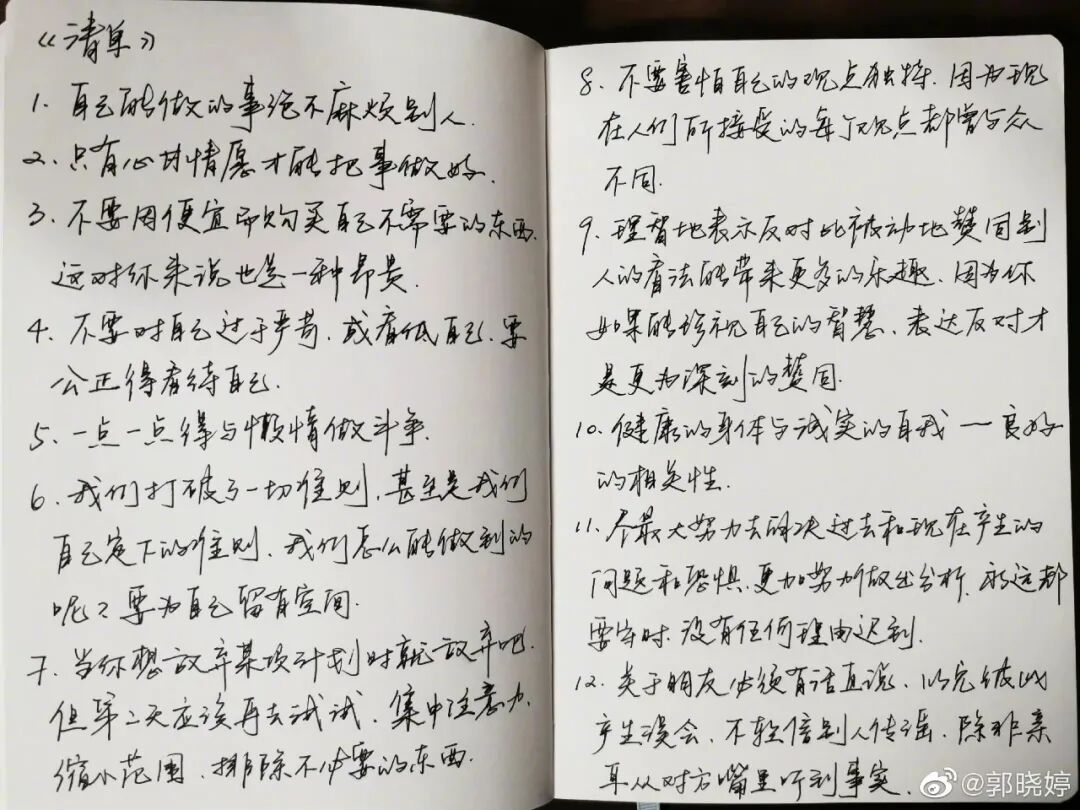 《清单》
1. 自己能做的事绝不麻烦别人.
2. 只有心甘情愿才能把事做好.
3. 不要因便宜而购买自己不需要的东西.
这对你来说也是一种昂贵.
4. 不要对自己过于严苛,或看低自己.要
公正得看待自己.
5. 一点一点得与懒惰做斗争.
6. 我们打破了一切准则,甚至是我们
自己定下的准则.我们怎么能做到的
呢?要为自己留有空间.
7. 当你想放弃某项计划时就放弃吧.
但第二天应该再去试试.集中注意力,
缩小范围,排除不必要的东西.
8. 不要害怕自己的观点独特.因为现
在人们所接受的每个观点都曾与众
不同.
9. 理智地表示反对比被动地赞同别
人的看法能带来更多的乐趣.因为你
如果能珍视自己的智慧.表达反对才
是更为深刻的赞同.
10. 健康的身体与诚实的自我一良好
的相关性.
11. 尽最大努力去解决过去和现在产生的
问题和恐惧.更加努力做出分析.永远都
要守时.没有任何理由迟到.
12. 关于朋友必须有话直说.以免彼此
产生误会.不轻信别人传谣.除非亲
耳从对方嘴里听到事实.
@郭晓婷